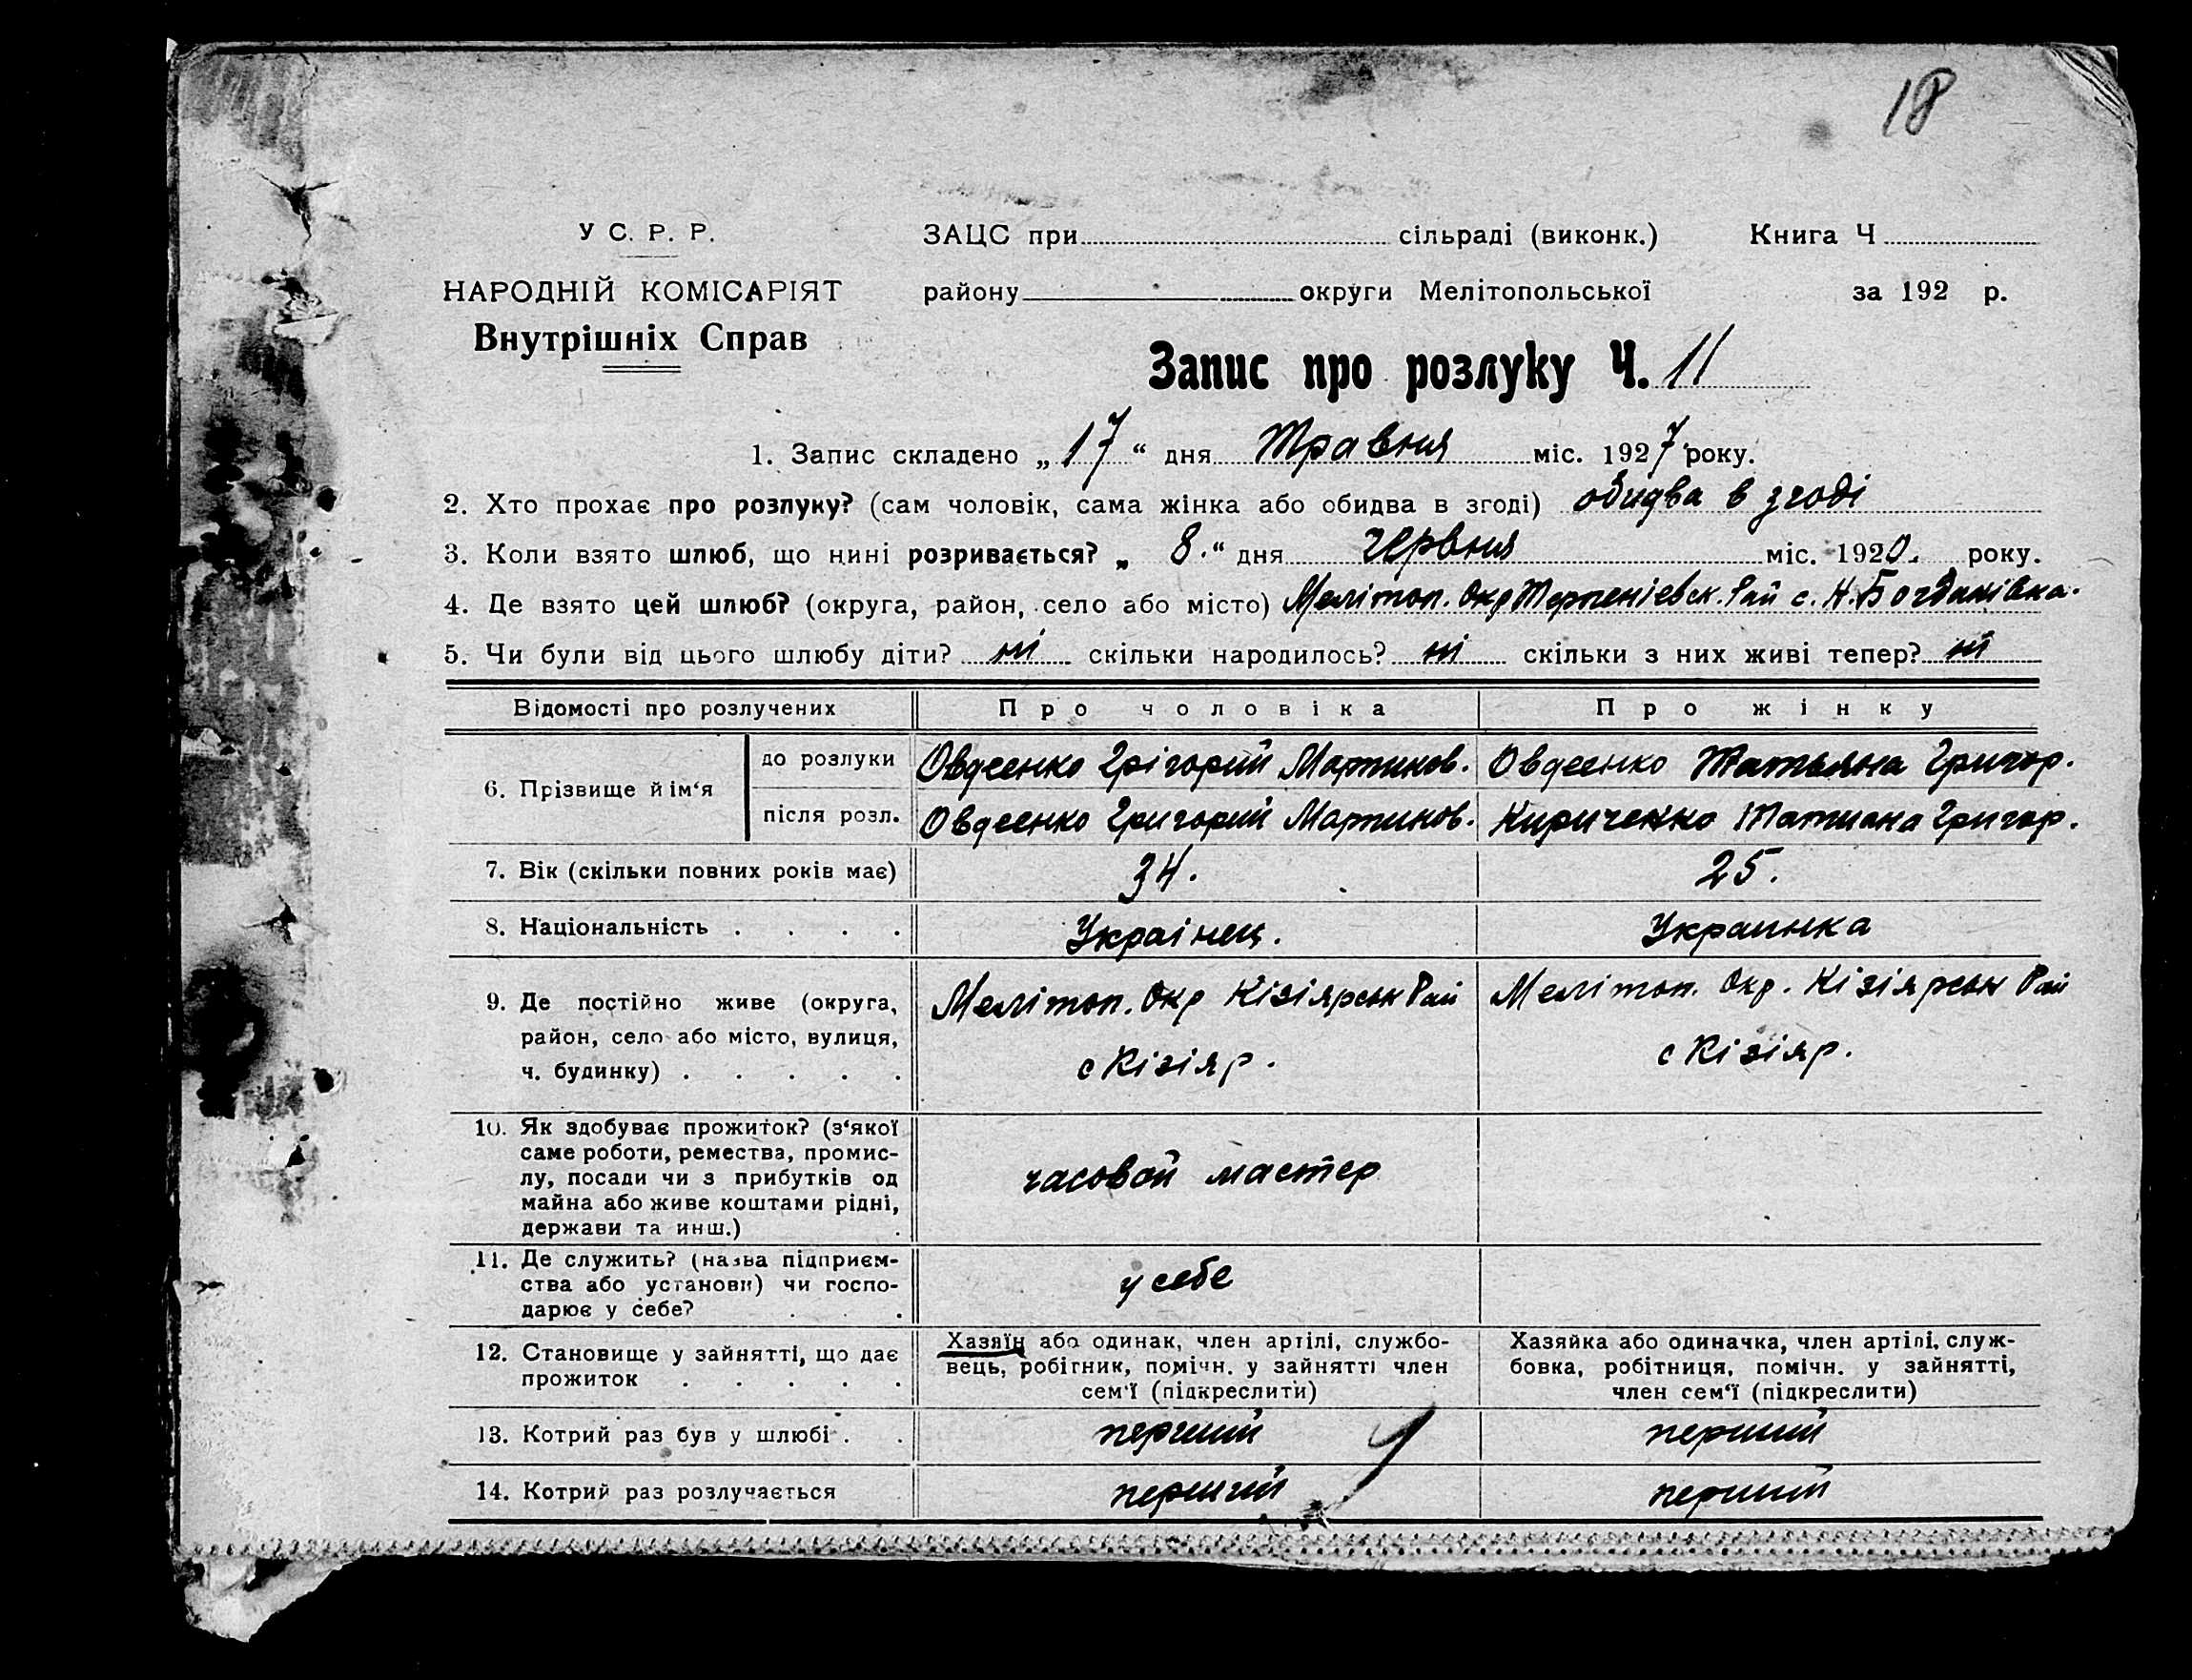 18
У С. Р. Р.
НАРОДНІЙ КОМІСАРІЯТ
Внутрішніх Справ
ЗАЦС при сільраді (виконк.) Книга Ч
району округи Мелітопольської за 192 р.
Запис про розлуку Ч. 11
1. Запис складено „ 17 “ дня Травня міс. 1927 року.
2. Хто прохає про розлуку? (сам чоловік, сама жінка або обидва в згоді) обидва в згоді
3. Коли взято шлюб, що нині розривається? „ 8. “ дня червня міс. 1920. року.
4. Де взято цей шлюб? (округа, район, село або місто) Меліто́п. Окр Терпеніевск. Рай с. Н. Богданівка.
5. Чи були від цього шлюбу діти? ні скільки народилось? ні скільки з них живі тепер? ні
Відомості про розлучених Про чоловіка Про жінку
6. Прізвище й ім‘я
до розлуки Овдеенко Грігорий Мартинов. Овдеенко Татьяна Григор.
після розл. Овдеенко Григорий Мартинов. Кириченко Татиана Григор.
7. Вік (скільки повних років має) 34. 25.
8. Національність . . . . Украінец. Украинка
9. Де постійно живе (округа, Мелітоп. Окр Кізіярськ Рай Мелітоп. Окр. Кізіярськ Рай
район, село або місто, вулиця,
ч. будинку) . . . . . с Кізіяр. с Кізіяр.
10. Як здобуває прожиток? (з‘якої
саме роботи, ремества, промис-
лу, посади чи з прибутків од часовой мастер
майна або живе коштами рідні,
держави та инш.) .
11. Де служить? (назва підприєм-
ства або установи) чи госпо- у себе
дарює у себе? . . .
12. Становище у зайнятті, що дає
прожиток . . . . .
Хазяїн або одинак, член артілі, службо-
вець, робігник, помічн. у зайнятті член
сем‘ї (підкреслити)
Хазяйка або одиначка, член артілі, служ-
бовка, робітниця, помічн. у зайнятті,
член сем‘ї (підкреслити)
13. Котрий раз був у шлюбі . . перший перший
14. Котрий раз розлучається перший перший